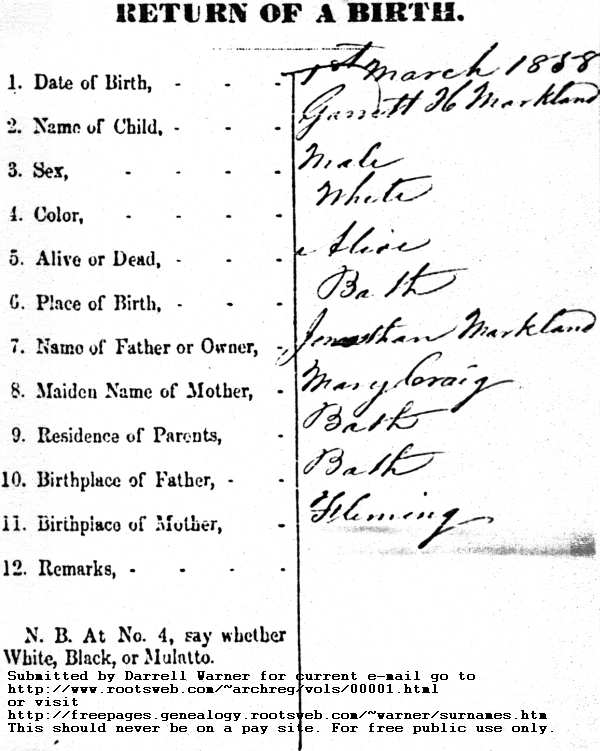 RETURN OF A BIRTH.
1. Date of Birth, - - - 1st March 1858
2. Name of Child, - - - Garrett H Markland
3. Sex, - - - - Male
4. Color, - - - - White
5. Alive or Dead, - - - Alive
6. Place of Birth, - - - Bath
7. Name of Father or Owner, - Jonathan Markland
8. Maiden Name of Mother, - Mary Craig
9. Residence of Parents, - Bath
10. Birthplace of Father, - - Bath
11. Birthplace of Mother, - Fleming
12. Remarks, - - - -
N. B. At No. 4, say whether
White, Black, or Mulatto.
Submitted by Darrell Warner for current e-mail go to
http://www.rootsweb.com/~archreg/vols/00001.html
or visit
http://freepages.genealogy.rootsweb.com/~warner/surnames.htm
This should never be on a pay site. For free public use only.